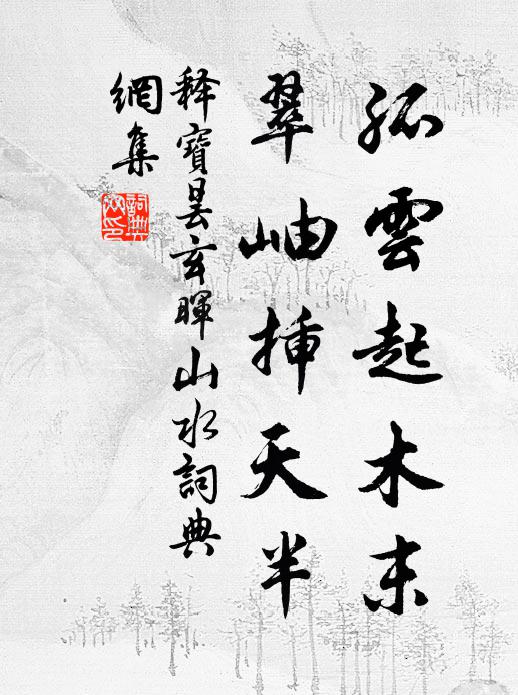 孤雲起木末
翠岫挿天半
释寶昙玄暉山水詞典
網集
詞典
网印